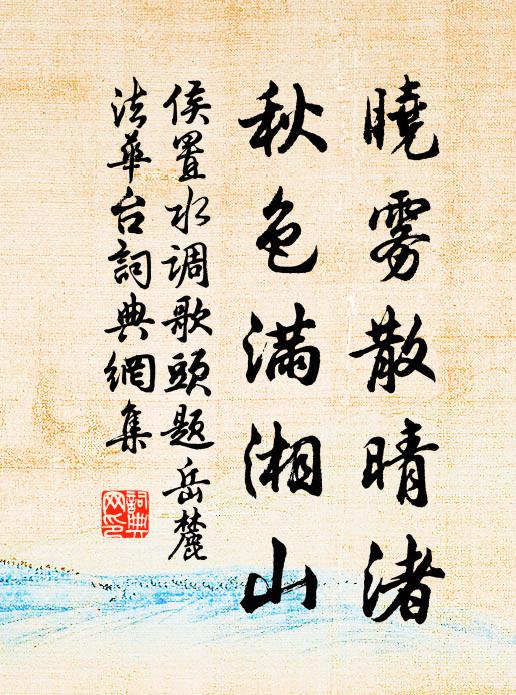 曉雾散晴渚
秋色滿湘山
侯置水调歌頭題岳麓
法華台詞典網集
詞典网印